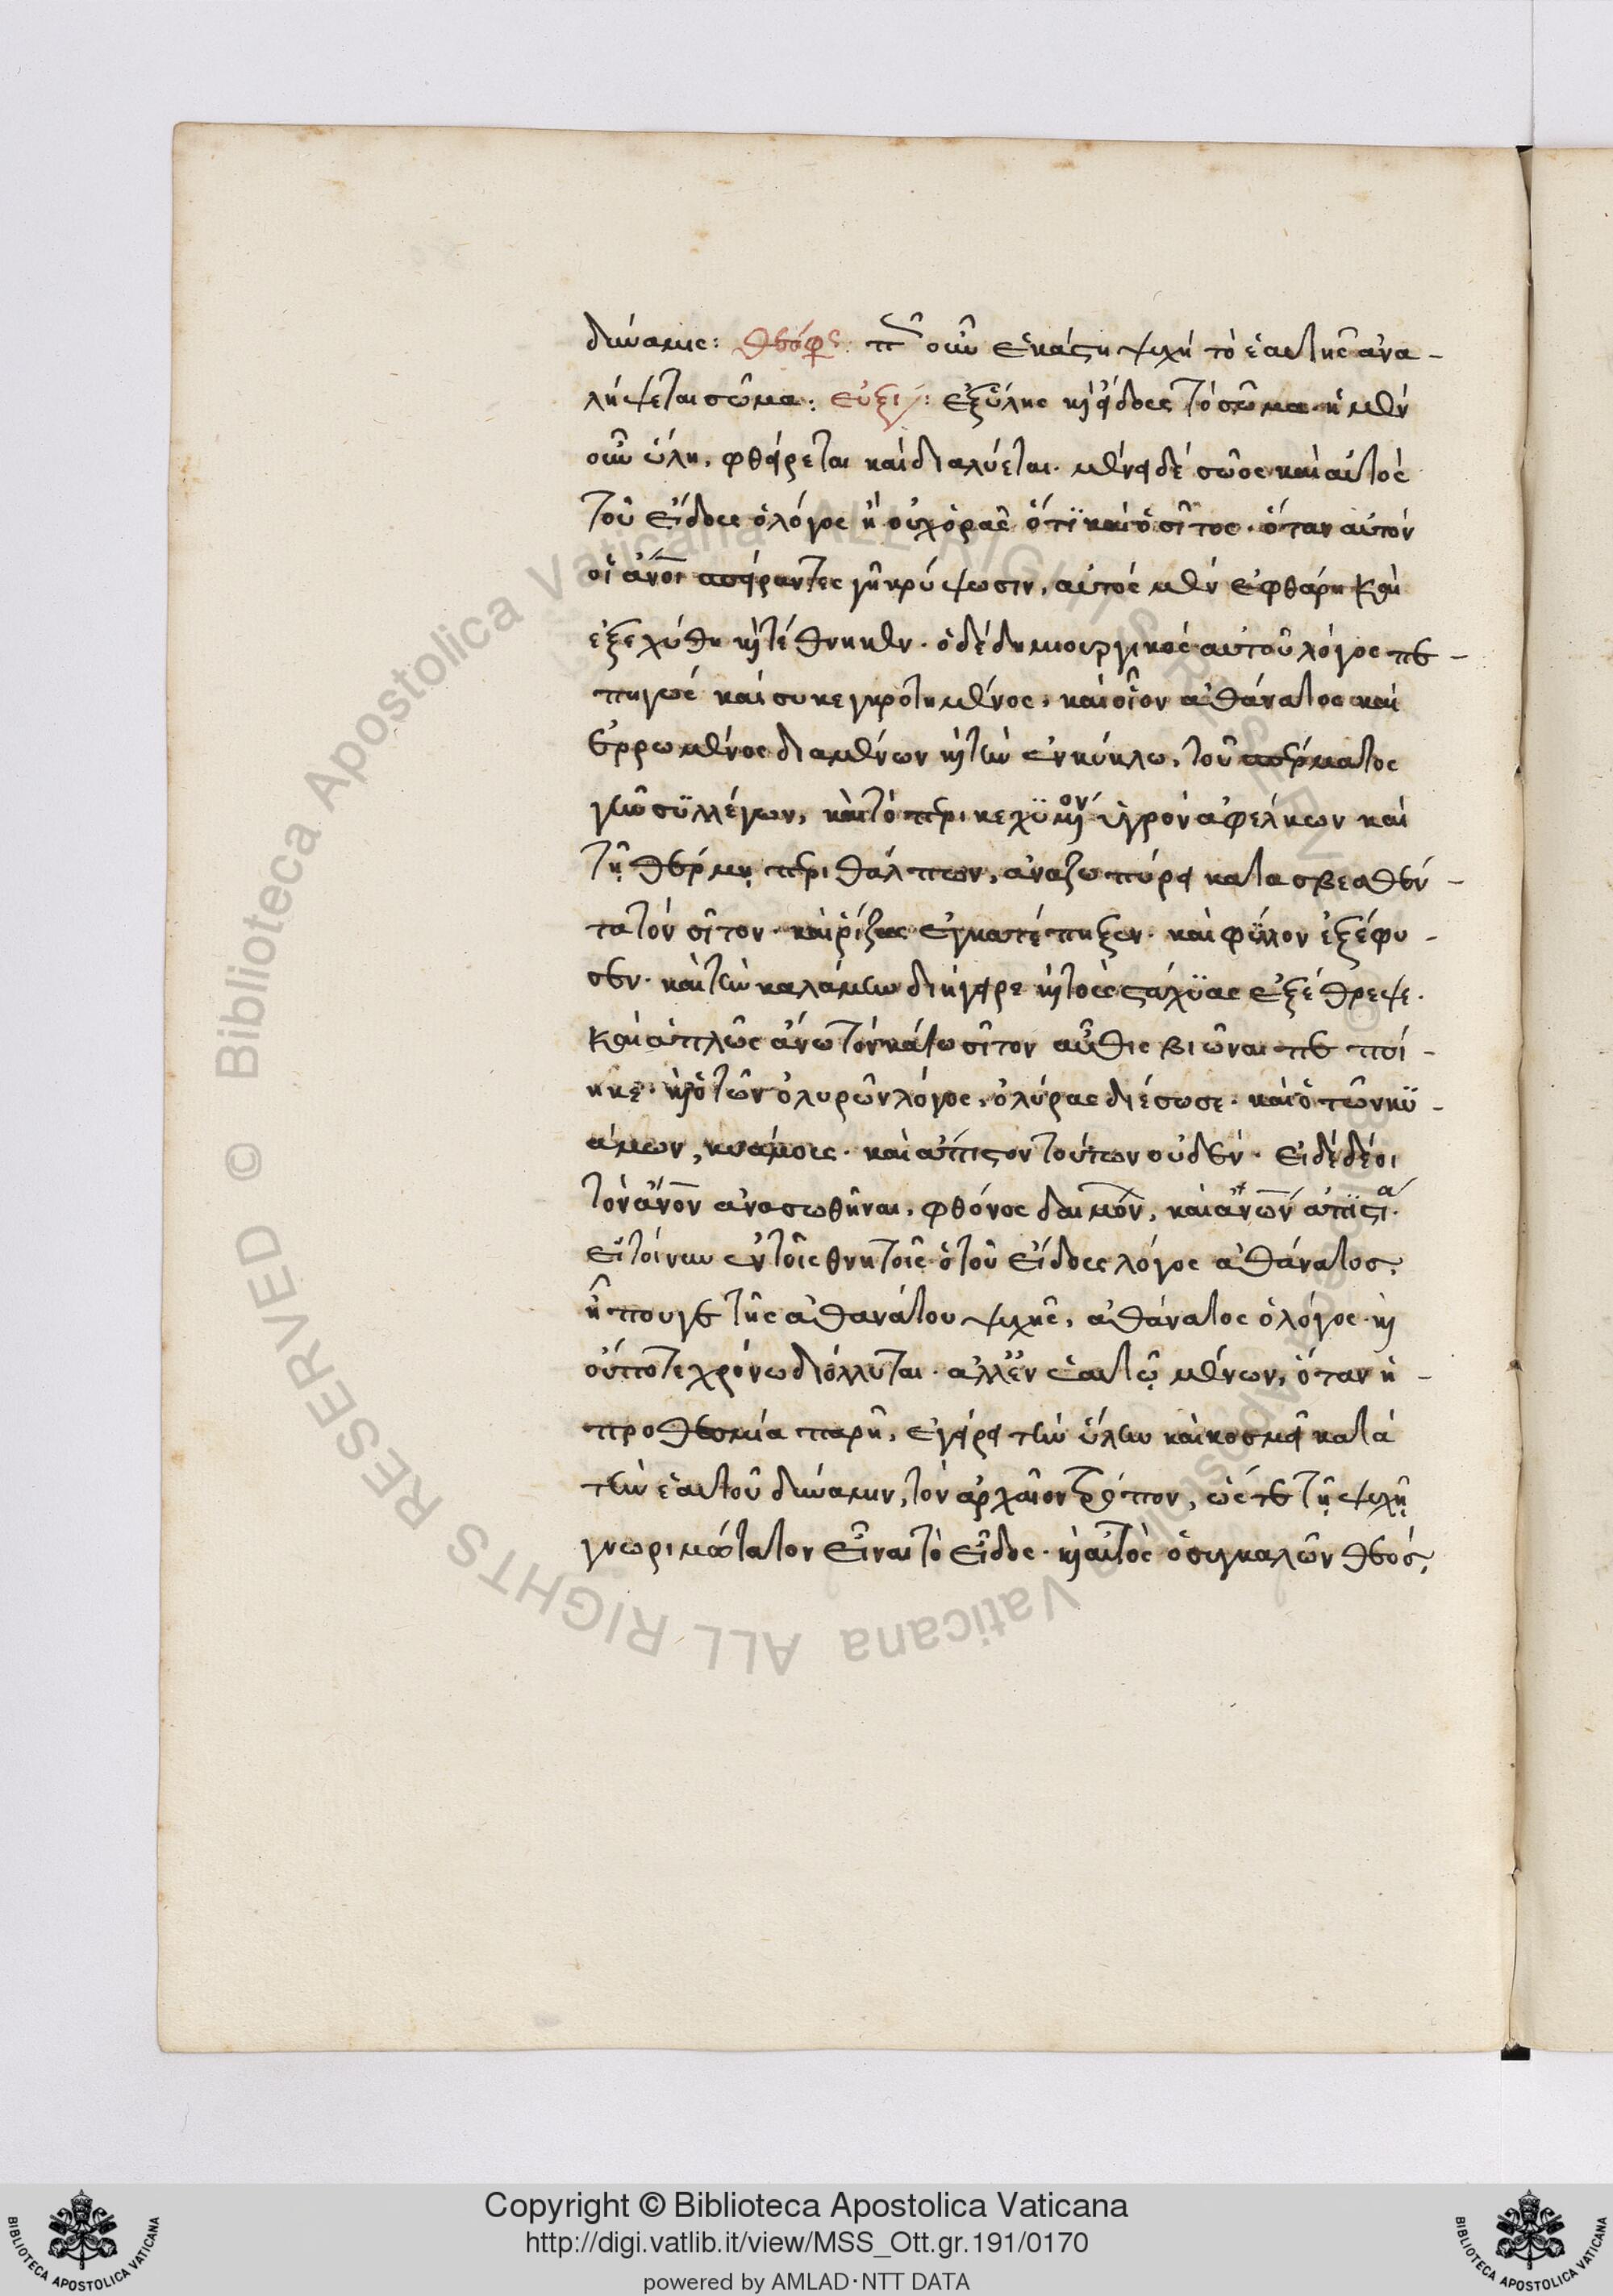 δύναμις: Θεόφρ: πῶς οὖν ἑκάστη ψυχὴ τὸ ἑαυτῆς ἀνα-
λήψεται σῶμα: εὐξί: ἐξ ὕλης κὶ εἴδους τὸ σῶμα· ἡ μὲν
οὖν ὕλη, φθείρεται καὶ διαλύεται· μένει δὲ σῶος καὶ αὐτὸς
τοῦ εἴδους ὁ λόγος ἢ οὐχ ὁρᾶς ὅτϊ καὶ ὁ σῖτος· ὅταν αὐτὸν
οἱ ἄνοι σπείραντες γῆ κρύψωσιν, αὐτὸς μὲν ἐφθάρη καὶ
ἐξεχύθη κὶ τέθνηκεν· ὁ δὲ δημιουργικὸς αὐτοῦ λόγος πε-
πηγὼς καὶ συκεγκροτημένος, καὶ οἷον ἀθάνατος καὶ
ἐρρωμένος διαμένων κὶ τὴν ἐν κύκλω, τοῦ σπέρματος
γῆν σϋλλέγων, καὶ τὸ περικεχϋμὸν ὑγρὸν ἀφέλκων καὶ
τῇ θέρμῃ περιθάλπων, ἀναζωπύρει κατασβεσθέν-
τα τὸν σῖτον· καὶ ῥίζας ἐγκατέπηξεν· καὶ φϋλλον ἐξέφυ-
σεν· καὶ τὴν καλάμην διήγειρε κὶ τοὺς στάχϋας ἐξέθρεψε·
καὶ ἁπλῶς ἄνω τὸν κάτω σῖτον αὖθις βιῶναι πεποί-
ηκε· κὶ ὁ τῶν ὀλυρῶν λόγος, ὀλύρας διέσωσε· καὶ ὁ τῶν κϋ-
άμων, κυάμους· καὶ ἄπιστον τούτων οὐδέν· εἰ δὲ δέοι
τὸν ἄνον ἀνασωθῆναι, φθόνος δαιμόν, καὶ ἀνων ἀπϊστία·
εἰ τοίνυν ἐν τοῖς θνητοῖς ὁ τοῦ εἴδους λόγος ἀθάνατος,
ἦ που γε τῆς ἀθανάτου ψυχῆς, ἀθάνατος ὁ λόγος κὶ
οὔποτε χρόνω διόλλυται· ἀλλ' ἐν ἑαυτῷ μένων, ὅταν ἡ-
προθεσμία παρῆ, ἐγείρει τὴν ὕλην καὶ κοσμεῖ κατὰ
τὴν ἑαυτοῦ δύναμιν, τὸν ἀρχαῖον τρόπον, ὥς τε τῇ ψυχῇ
γνωριμώτατον εἶναι τὸ εἶδος· κὶ αὐτὸς ὁ συγκαλῶν θεός,
Copyright © Biblioteca Apostolica Vaticana
http://digi.vatlib.it/view/MSS_Ott.gr.191/0170
powered by AMLAD·NTT DATA
BIBLIOTECA APOSTOLICA VATICANA
BIBLIOTECA APOSTOLICA VATICANA
© Biblioteca Apostolica Vaticana ALL RIGHTS RESERVED
© Biblioteca Apostolica Vaticana ALL RIGHTS RESERVED